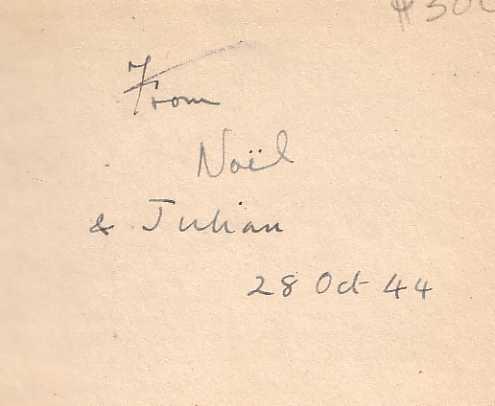 From
Noël
& Julian
28 Oct 44